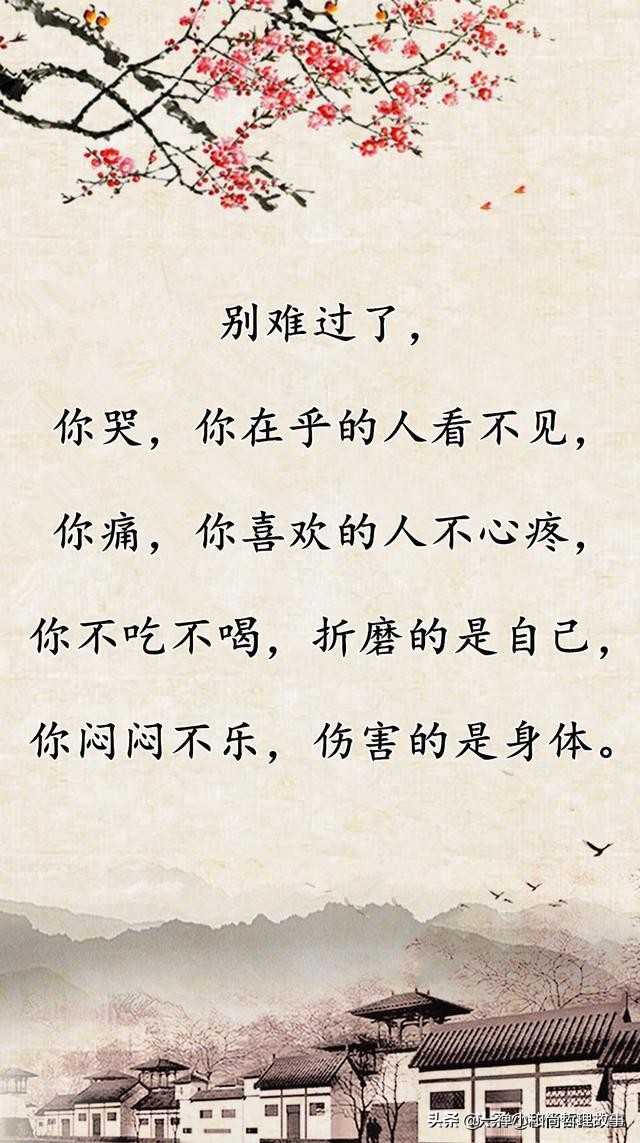 别难过了，
你哭，你在乎的人看不见，
你痛，你喜欢的人不心疼，
你不吃不喝，折磨的是自己，
你闷闷不乐，伤害的是身体。
头条 @一禅小和尚哲理故事